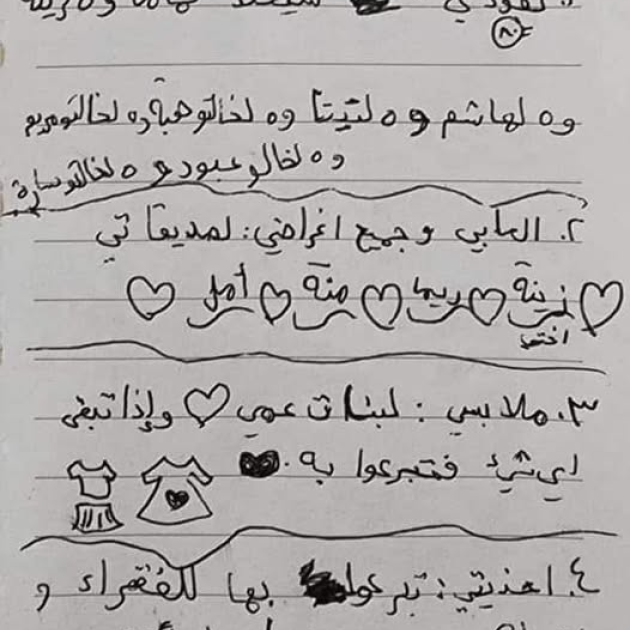 ٨٠
و ٥ لهاشم و ٥ لتيتا و ٥ لخالتو هبة و ٥ لخالتو مريم
و ٥ لخالو عبود و ٥ لخالتو سارة
٢. العابي و جميع اغراضي: لصديقاتي
زينة ريما منة أمل
اختي
٣. ملابسي: لبنات عمي وإذا تبقى
اي شيء فتبرعوا به.
٤. احذيتي: تبرعوا بها للفقراء و